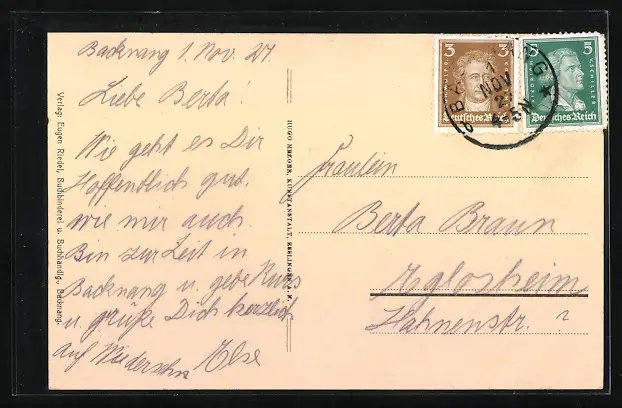 Backnang 1. Nov. 27.
Liebe Berta!
Wie geht es Dir
Hoffentlich gut,
wie mir auch.
Bin zur Zeit in
Backnang u. gebe Kurs
u. grüße Dich herzlich
auf Wiedersehn Else
Verlag: Eugen Riedel, Buchbinderei u. Buchhandlg., Backnang.
HUGO KUNSTANSTALT, ESSLINGEN A. N.
3 3
Deutsches Reich
5 5
FRIEDRICH V. SCHILLER
Deutsches Reich
NOV
Fräulein
Berta Braun
Eglosheim
Hahnenstr. ?